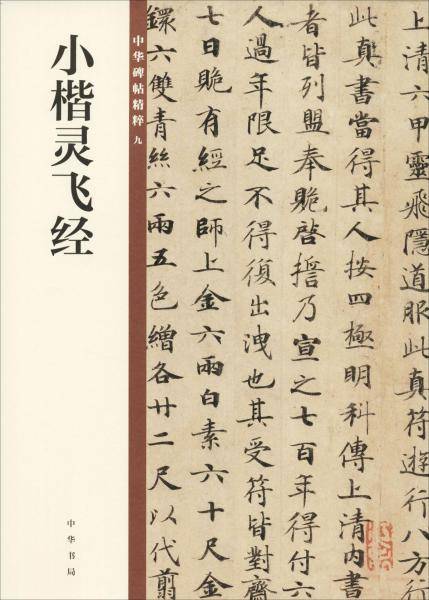 小楷灵飞经
中华碑帖精粹 九
上清六甲靈飛隱道服此真符遊行八方行
此真書當得其人按四極明科傳上清内書
者皆列盟奉貺啓誓乃宣之七百年得付六
人過年限足不得復出洩也其受符皆對齋
七日貺有經之師上金六兩白素六十尺金
鐶六雙青絲六兩五色繒各廿二尺以代翦
中华书局